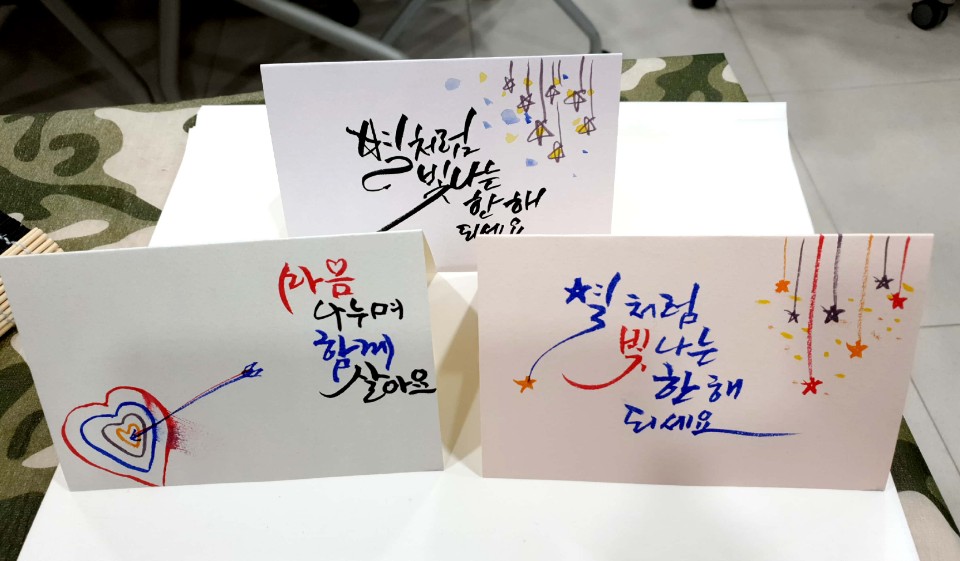 별처럼
빛나는
한해
되세요
마음
나누며
함께
살아요
별처럼
빛나는
한해
되세요